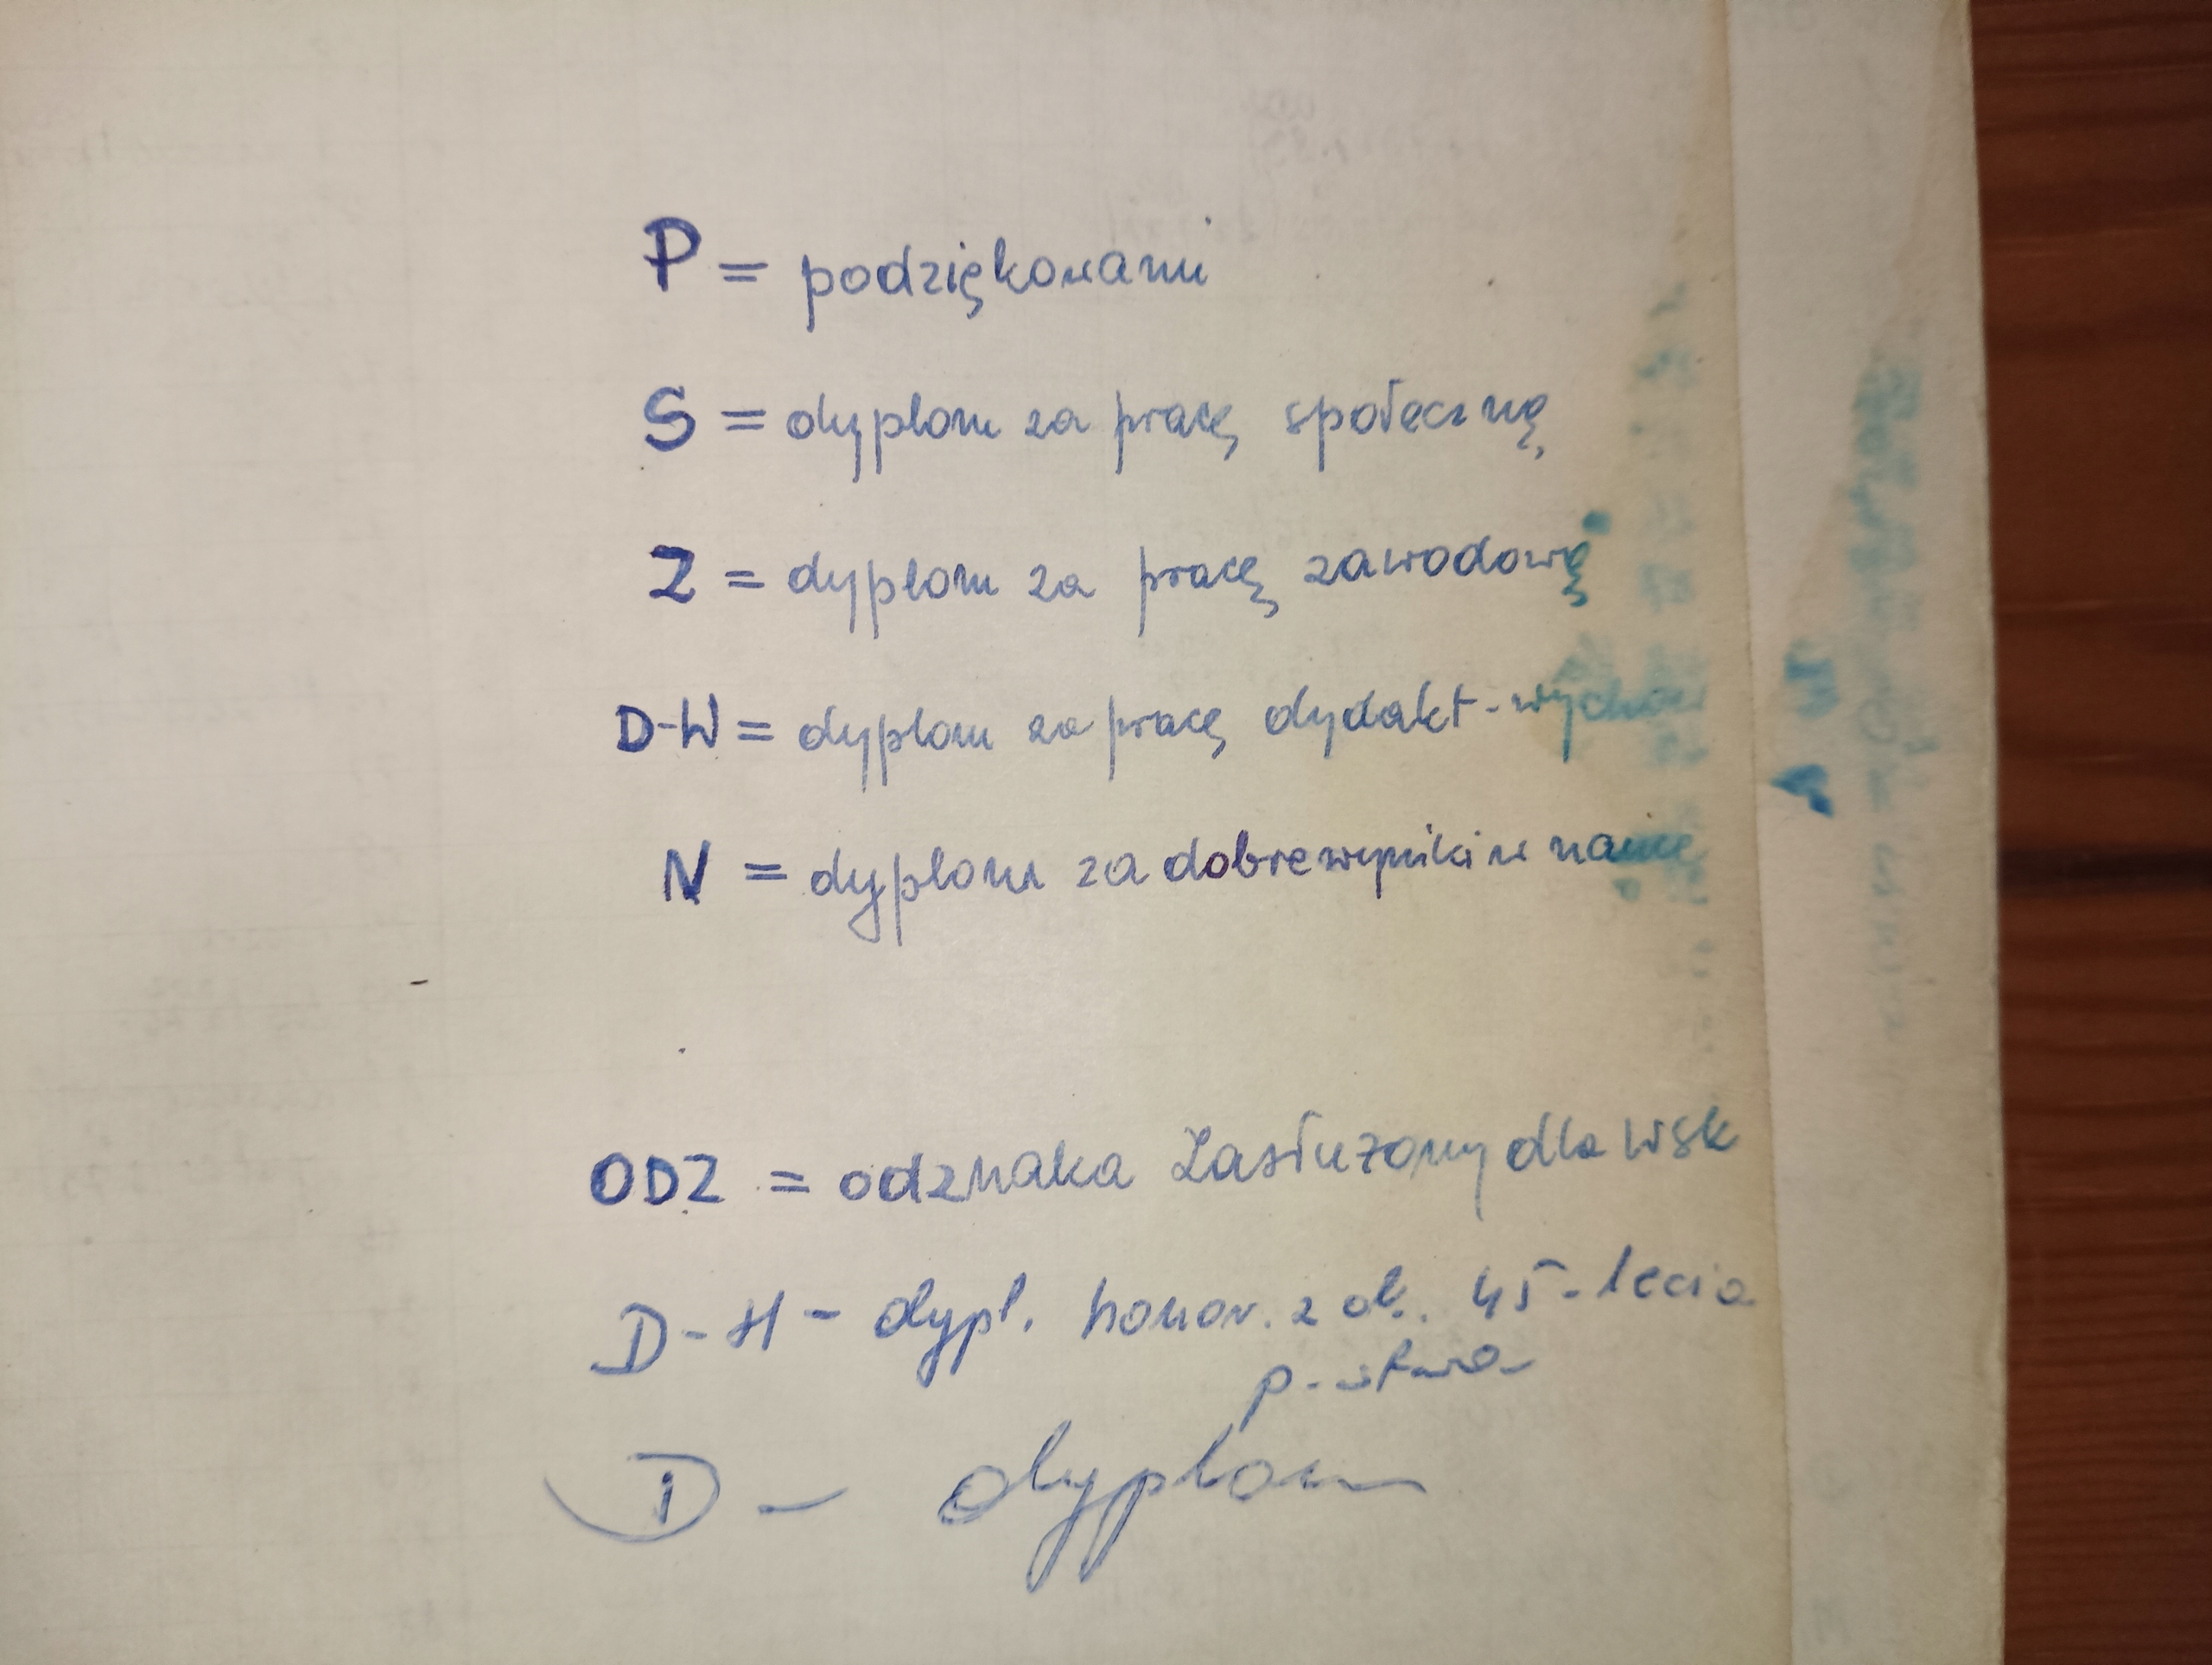 P = podziękowani
S = dyplom za pracę społeczną
Z = dyplom za pracę zawodową
D-W = dyplom za pracę dydakt-wychow
N = dyplom za dobre wyniki w nauce
ODZ = odznaka Zasłużony dla WSK
D-H - dypl. honor. z ok. 45-lecia
D - dyplom